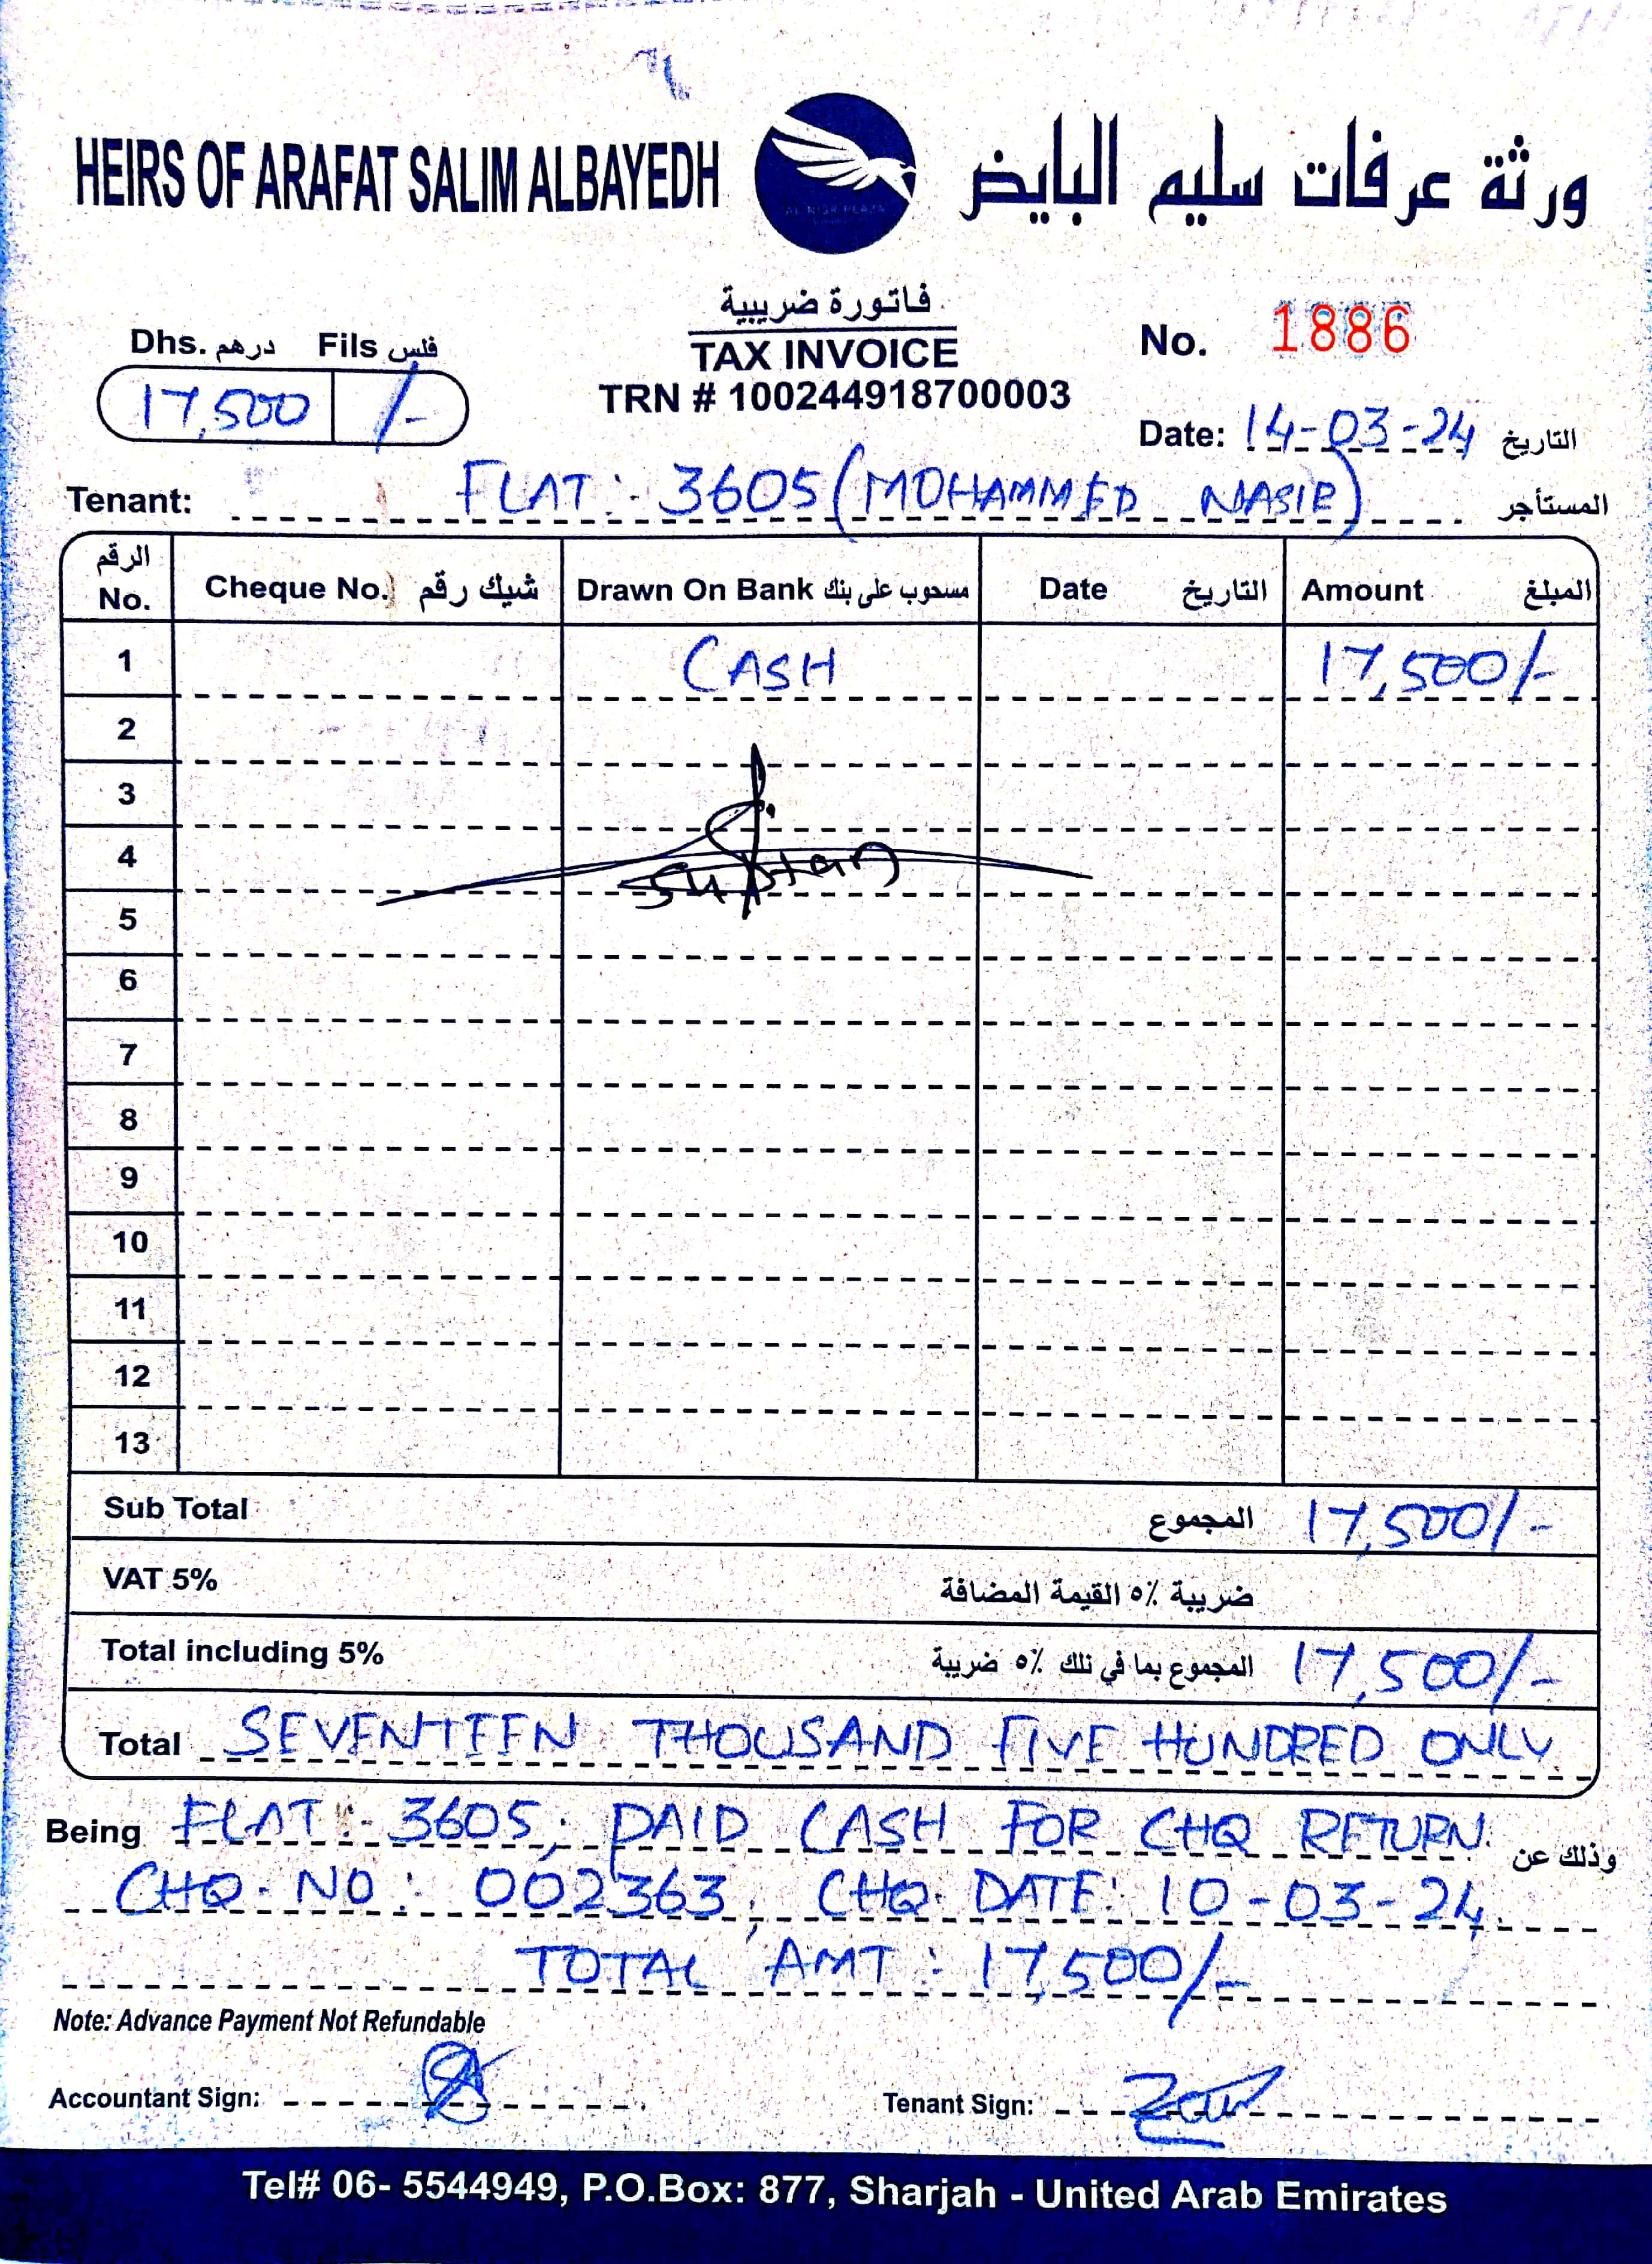 HEIRS OF ARAFAT SALIM ALBAYEDH
ورثة عرفات سليم البايض
AL NISR PLAZA
فاتورة ضريبية
TAX INVOICE
TRN # 100244918700003
Dhs. درهم Fils فلس
17,500 /-
No. 1886
Date: 14-03-24 التاريخ
Tenant: FLAT :- 3605 (MOHAMMED NASIR) المستأجر
الرقم No. Cheque No. شيك رقم Drawn On Bank مسحوب على بنك Date التاريخ Amount المبلغ
1 CASH 17,500/-
2
3
4
5
6
7
8
9
10
11
12
13
Sub Total المجموع 17,500/-
VAT 5% ضريبة ٥٪ القيمة المضافة
Total including 5% المجموع بما في تلك ٥٪ ضريبة 17,500/-
Total SEVENTEEN THOUSAND FIVE HUNDRED ONLY
Being FLAT :- 3605; PAID CASH FOR CHQ RETURN. وذلك عن
CHQ. NO: 002363; CHQ. DATE: 10-03-24.
TOTAL AMT : 17,500/-
Note: Advance Payment Not Refundable
Accountant Sign:
Tenant Sign:
Tel# 06- 5544949, P.O.Box: 877, Sharjah - United Arab Emirates